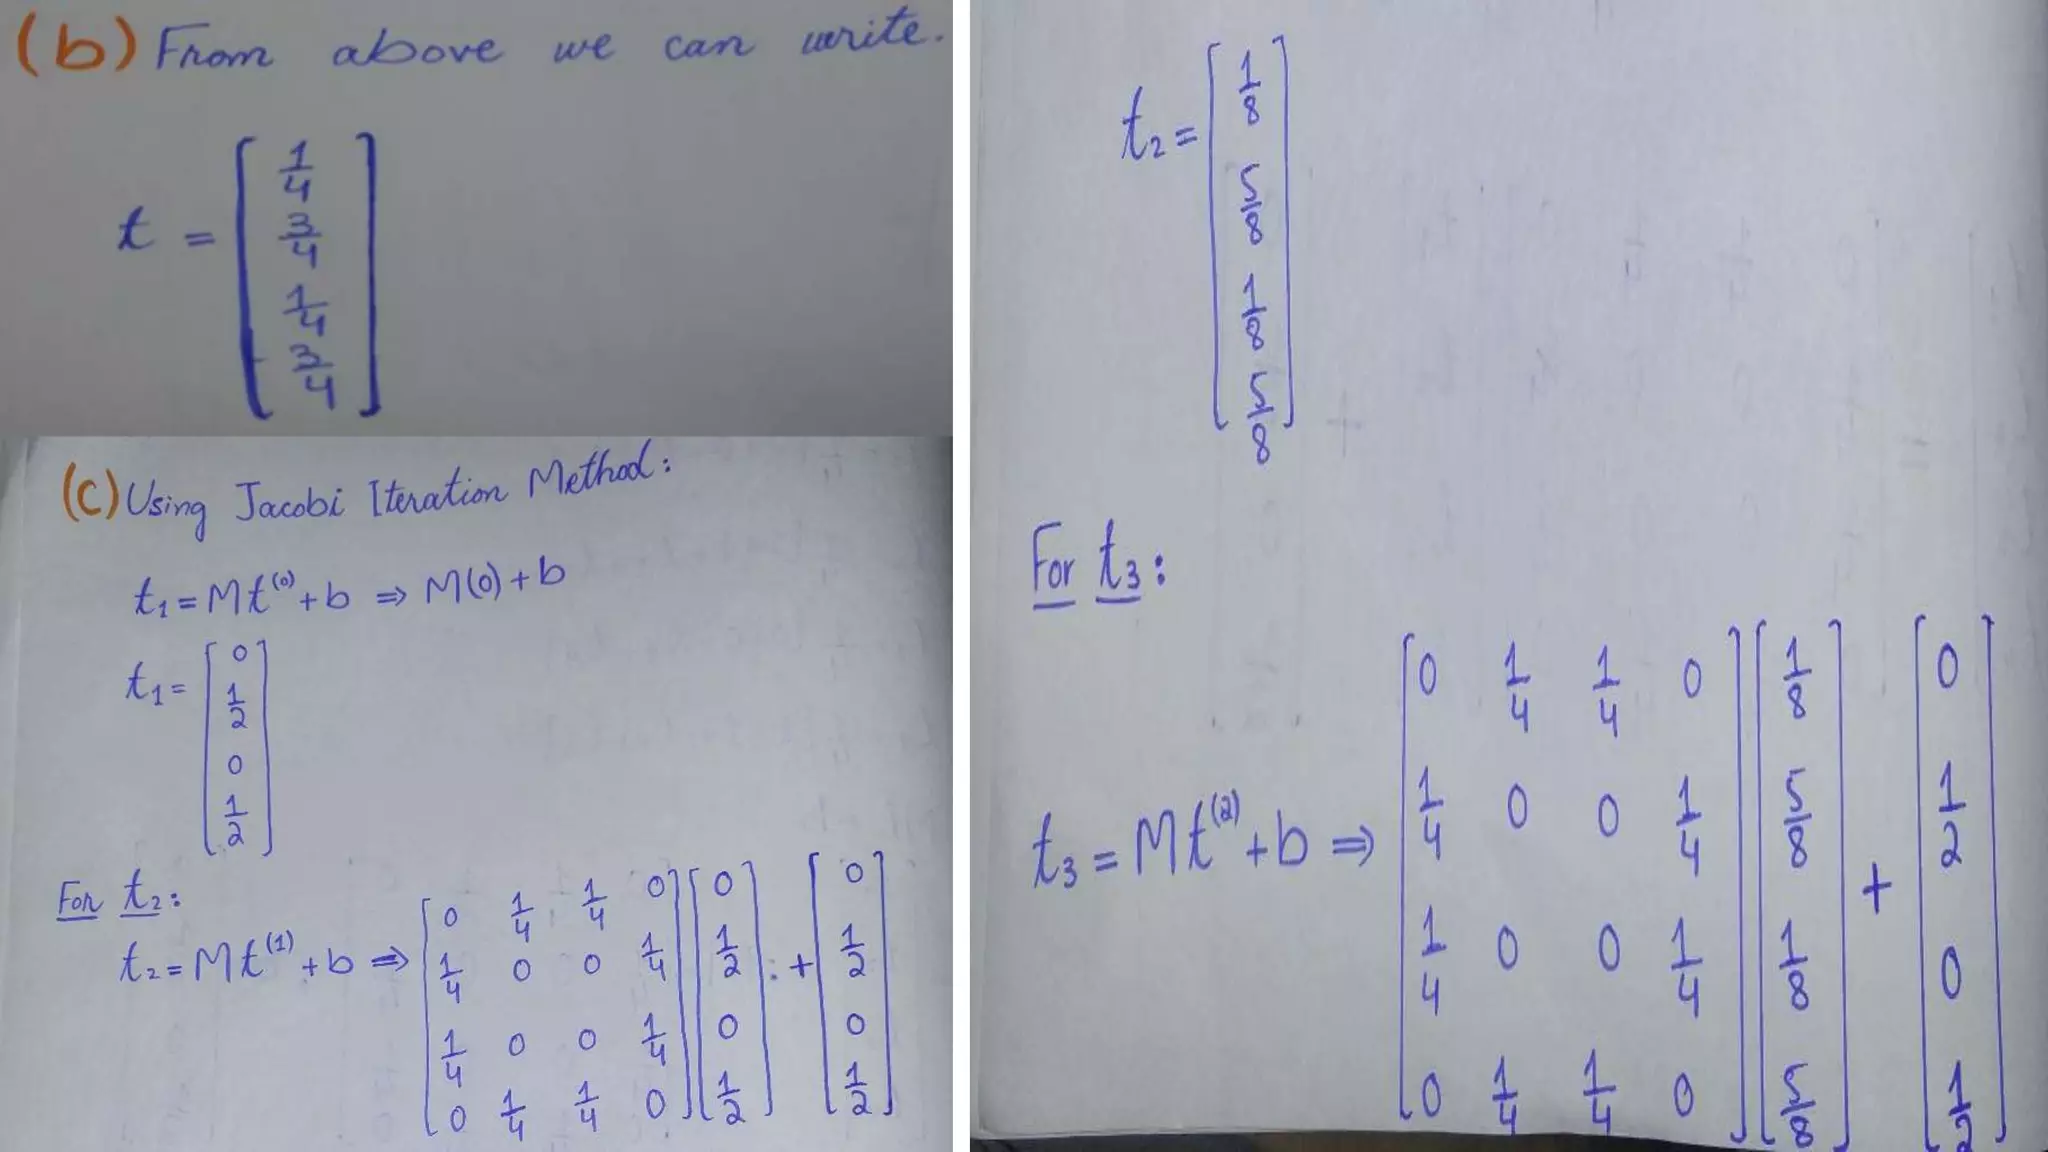 (b) From above we can write.
t = [ 1/4 3/4 1/4 3/4 ]
(C) Using Jacobi Iteration Method:
t₁ = Mt⁽⁰⁾ + b ⇒ M(0) + b
t₁ = [ 0 1/2 0 1/2 ]
For t₂:
t₂ = Mt⁽¹⁾ + b ⇒ [ 0 1/4 1/4 0 ] [ 0 ] [ 0 ]
[ 1/4 0 0 1/4 ] [ 1/2 ] + [ 1/2 ]
[ 1/4 0 0 1/4 ] [ 0 ] [ 0 ]
[ 0 1/4 1/4 0 ] [ 1/2 ] [ 1/2 ]
t₂ = [ 1/8 5/8 1/8 5/8 ]
For t₃:
t₃ = Mt⁽²⁾ + b ⇒ [ 0 1/4 1/4 0 ] [ 1/8 ] [ 0 ]
[ 1/4 0 0 1/4 ] [ 5/8 ] + [ 1/2 ]
[ 1/4 0 0 1/4 ] [ 1/8 ] [ 0 ]
[ 0 1/4 1/4 0 ] [ 5/8 ] [ 1/2 ]